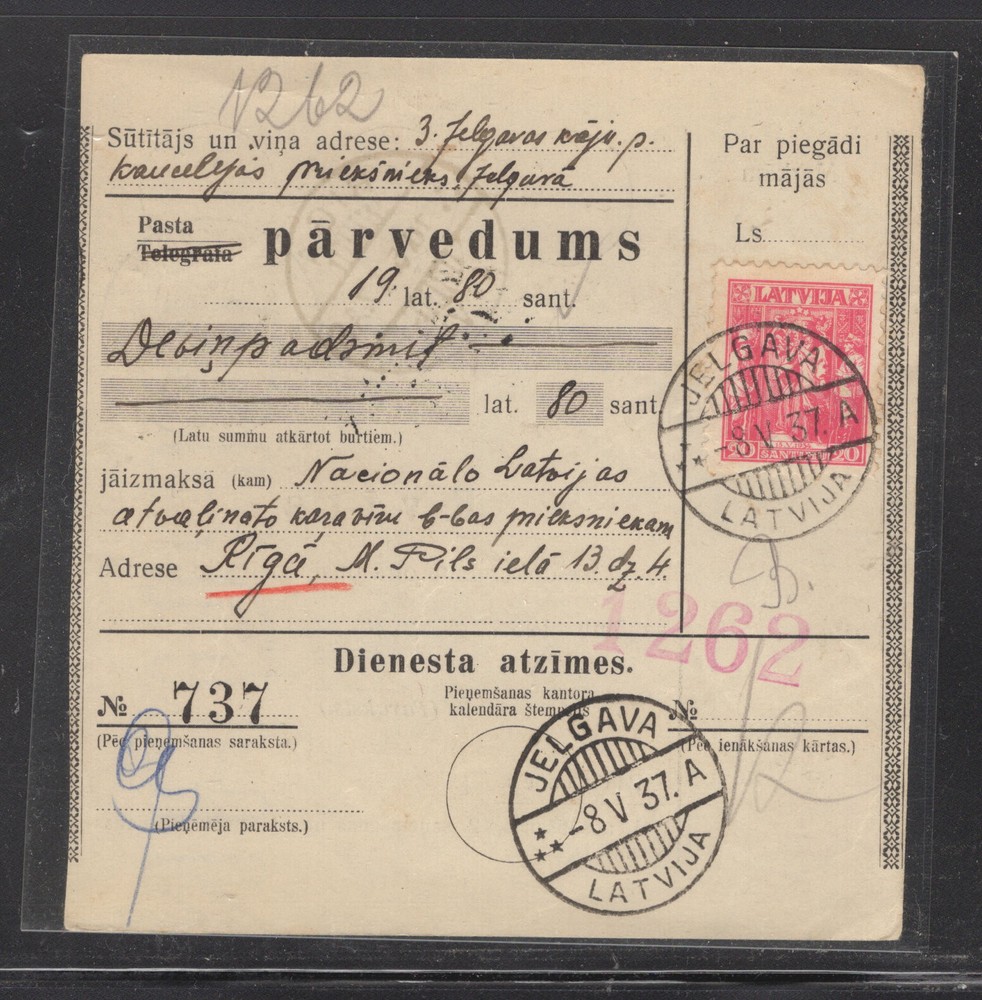 1262
Sūtītājs un viņa adrese: 3. Jelgavas kājn. p.
kancelejas priekšnieks, Jelgavā
Par piegādi
mājās
Ls
Pasta
Telegrafa
pārvedums
19. lat. 80 sant.
Deviņpadsmit
lat. 80 sant.
(Latu summu atkārtot burtiem.)
LATVIJA
20 SANTIMU 20
JELGAVA
-8 V 37. A
LATVIJA
jāizmaksā (kam) Nacionālo Latvijas
atvaļināto karavīru b-bas priekšniekam
Adrese Rīgā, M. Pils ielā 13. dz. 4.
1262
Dienesta atzīmes.
№ 737
(Pēc pieņemšanas saraksta.)
Pieņemšanas kantora
kalendāra štempelis
№
(Pēc ienākšanas kārtas.)
JELGAVA
-8 V 37. A
LATVIJA
(Pieņēmēja paraksts.)